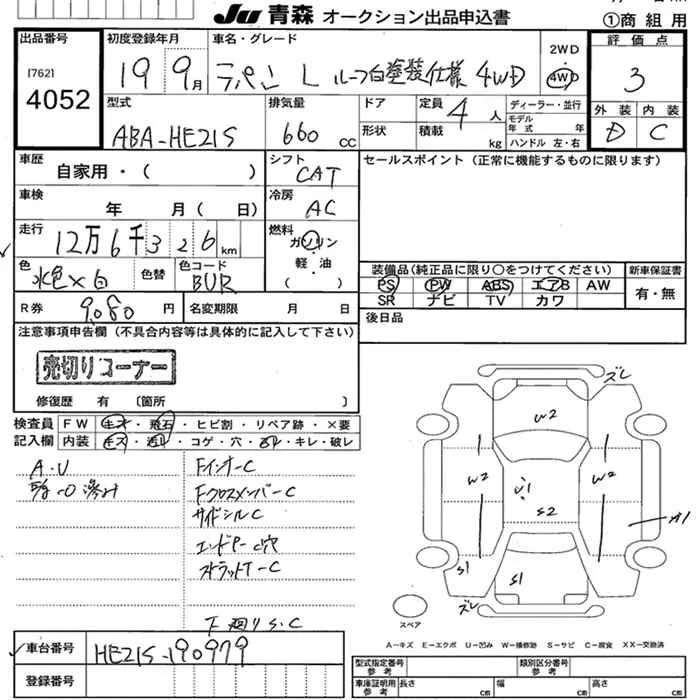 Ju 青森 オークション出品申込書
①商 組 用
出品番号
17621
4052
初度登録年月
19 9月
車名・グレード
ラパン L ルーフ白塗装仕様 4WD
2WD
4WD
評価点
3
外装 内装
D C
型式
ABA-HE21S
排気量
660 cc
ドア
形状
定員 4人
積載 kg
ディーラー・並行
モデル年式 年
ハンドル 左・右
車歴
自家用・( )
シフト
CAT
セールスポイント(正常に機能するものに限ります)
車検
年 月( 日)
冷房
AC
走行
12万6千326km
燃料
ガソリン
軽・油
( )
色
水色×白
色替
色コード
BUR
装備品(純正品に限り○をつけてください)
PS PW ABS エアB AW
SR ナビ TV カワ
新車保証書
有・無
R券 9,080 円
名変期限 月 日
後日品
注意事項申告欄(不具合内容等は具体的に記入して下さい)
売切りコーナー
修復歴 有 〔箇所 〕
検査員記入欄
FW キズ・飛石・ヒビ割・リペア跡・×要
内装 キズ・汚れ・コゲ・穴・・キレ・破レ
A・U
Fインナー C
Fクロスメンバー C
サイドシル C
エンドP C穴
ストラットT-C
下廻り S・C
ズレ
W2
W2
W2
U1
S2
A1
S1
S1
ズレ
スペア
A-キズ E-エクボ U-凹み W-補修跡 S-サビ C-腐食 XX-交換済
車台番号 HE21S-190979
登録番号
型式指定番号 参考
類別区分番号 参考
車庫証明用 参考
長さ cm
幅 cm
高さ cm